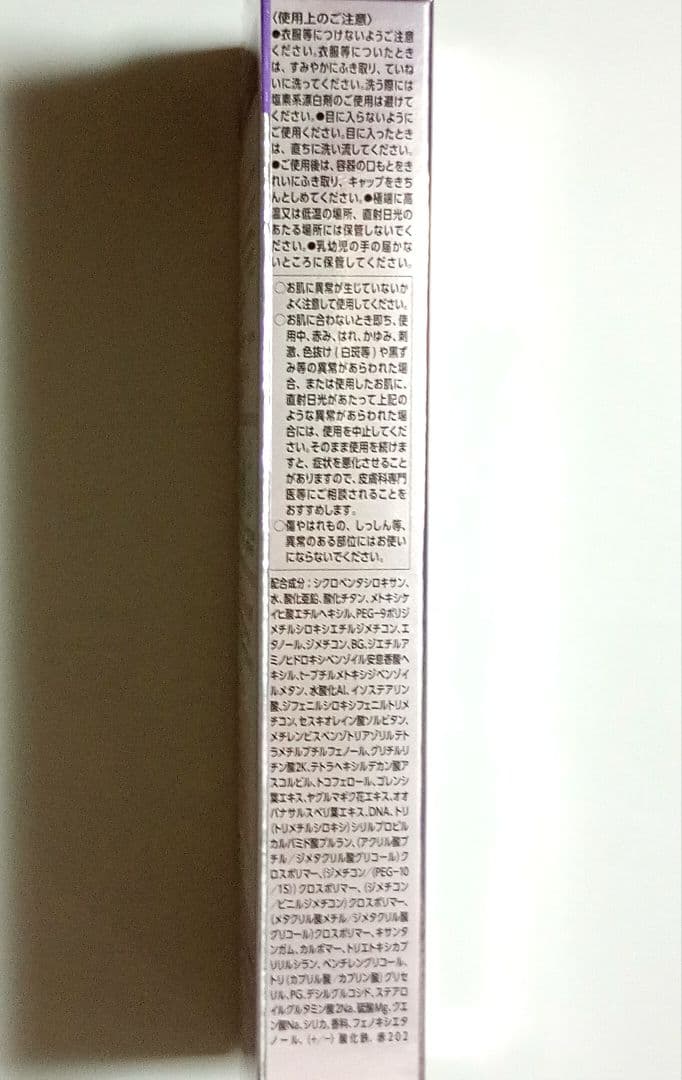 〈使用上のご注意〉
●衣服等につけないようご注意
ください。衣服等についたとき
は、すみやかにふき取り、ていね
いに洗ってください。洗う際には
塩素系漂白剤のご使用は避けて
ください。●目に入らないように
ご使用ください。目に入ったとき
は、直ちに洗い流してください。
●ご使用後は、容器の口もとをき
れいにふき取り、キャップをきち
んとしめてください。●極端に高
温又は低温の場所、直射日光の
あたる場所には保管しないでく
ださい。●乳幼児の手の届かな
いところに保管してください。
○お肌に異常が生じていないか
よく注意して使用してください。
○お肌に合わないとき即ち、使
用中、赤み、はれ、かゆみ、刺
激、色抜け(白斑等)や黒ず
み等の異常があらわれた場
合、または使用したお肌に、
直射日光があたって上記の
ような異常があらわれた場
合には、使用を中止してくだ
さい。そのまま使用を続けま
すと、症状を悪化させること
がありますので、皮膚科専門
医等にご相談されることを
おすすめします。
○傷やはれもの、しっしん等、
異常のある部位にはお使い
にならないでください。
配合成分:シクロペンタシロキサン、
水、酸化亜鉛、酸化チタン、メトキシケ
イヒ酸エチルヘキシル、PEG-9ポリジ
メチルシロキシエチルジメチコン、エ
タノール、ジメチコン、BG、ジエチルア
ミノヒドロキシベンゾイル安息香酸ヘ
キシル、t-ブチルメトキシジベンゾイ
ルメタン、水酸化Al、イソステアリン
酸、ジフェニルシロキシフェニルトリメ
チコン、セスキオレイン酸ソルビタン、
メチレンビスベンゾトリアゾリルテト
ラメチルブチルフェノール、グリチルリ
チン酸2K、テトラヘキシルデカン酸ア
スコルビル、トコフェロール、ゴレンシ
葉エキス、ヤグルマギク花エキス、オオ
バナサルスベリ葉エキス、DNA、トリ
(トリメチルシロキシ)シリルプロピル
カルバミド酸プルラン、(アクリル酸ブ
チル/ジメタクリル酸グリコール)ク
ロスポリマー、(ジメチコン/(PEG-10
/15))クロスポリマー、(ジメチコン
/ビニルジメチコン)クロスポリマー、
(メタクリル酸メチル/ジメタクリル酸
グリコール)クロスポリマー、キサンタ
ンガム、カルボマー、トリエトキシカプ
リリルシラン、ペンチレングリコール、
トリ(カプリル酸/カプリン酸)グリセ
リル、PG、デシルグルコシド、ステアロ
イルグルタミン酸2Na、硫酸Mg、クエ
ン酸Na、シリカ、香料、フェノキシエタ
ノール、(+/-)酸化鉄、赤202